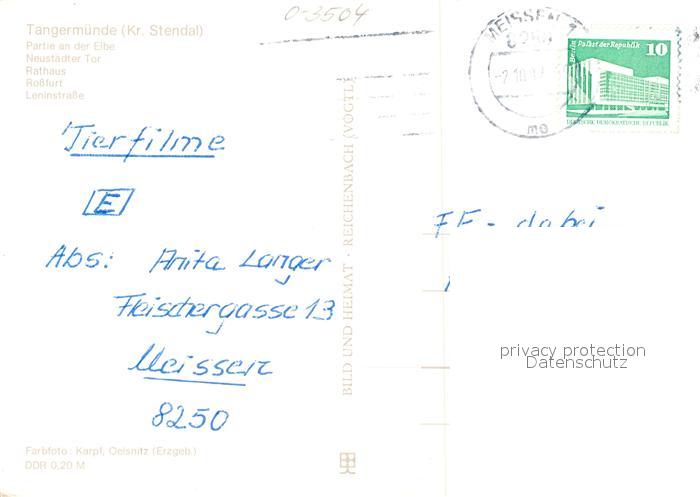 O-3504
Tangermünde (Kr. Stendal)
Partie an der Elbe
Neustädter Tor
Rathaus
Roßfurt
Leninstraße
MEISSEN 1
Berlin Palast der Republik 10
DEUTSCHE DEMOKRATISCHE REPUBLIK
mg
Tierfilme
E
FF - dabei
Abs: Anita Langer
Fleischergasse 13
Meissen
8250
BILD UND HEIMAT · REICHENBACH (VOGTL)
privacy protection
Datenschutz
Farbfoto: Karpf, Oelsnitz (Erzgeb.)
DDR 0,20 M